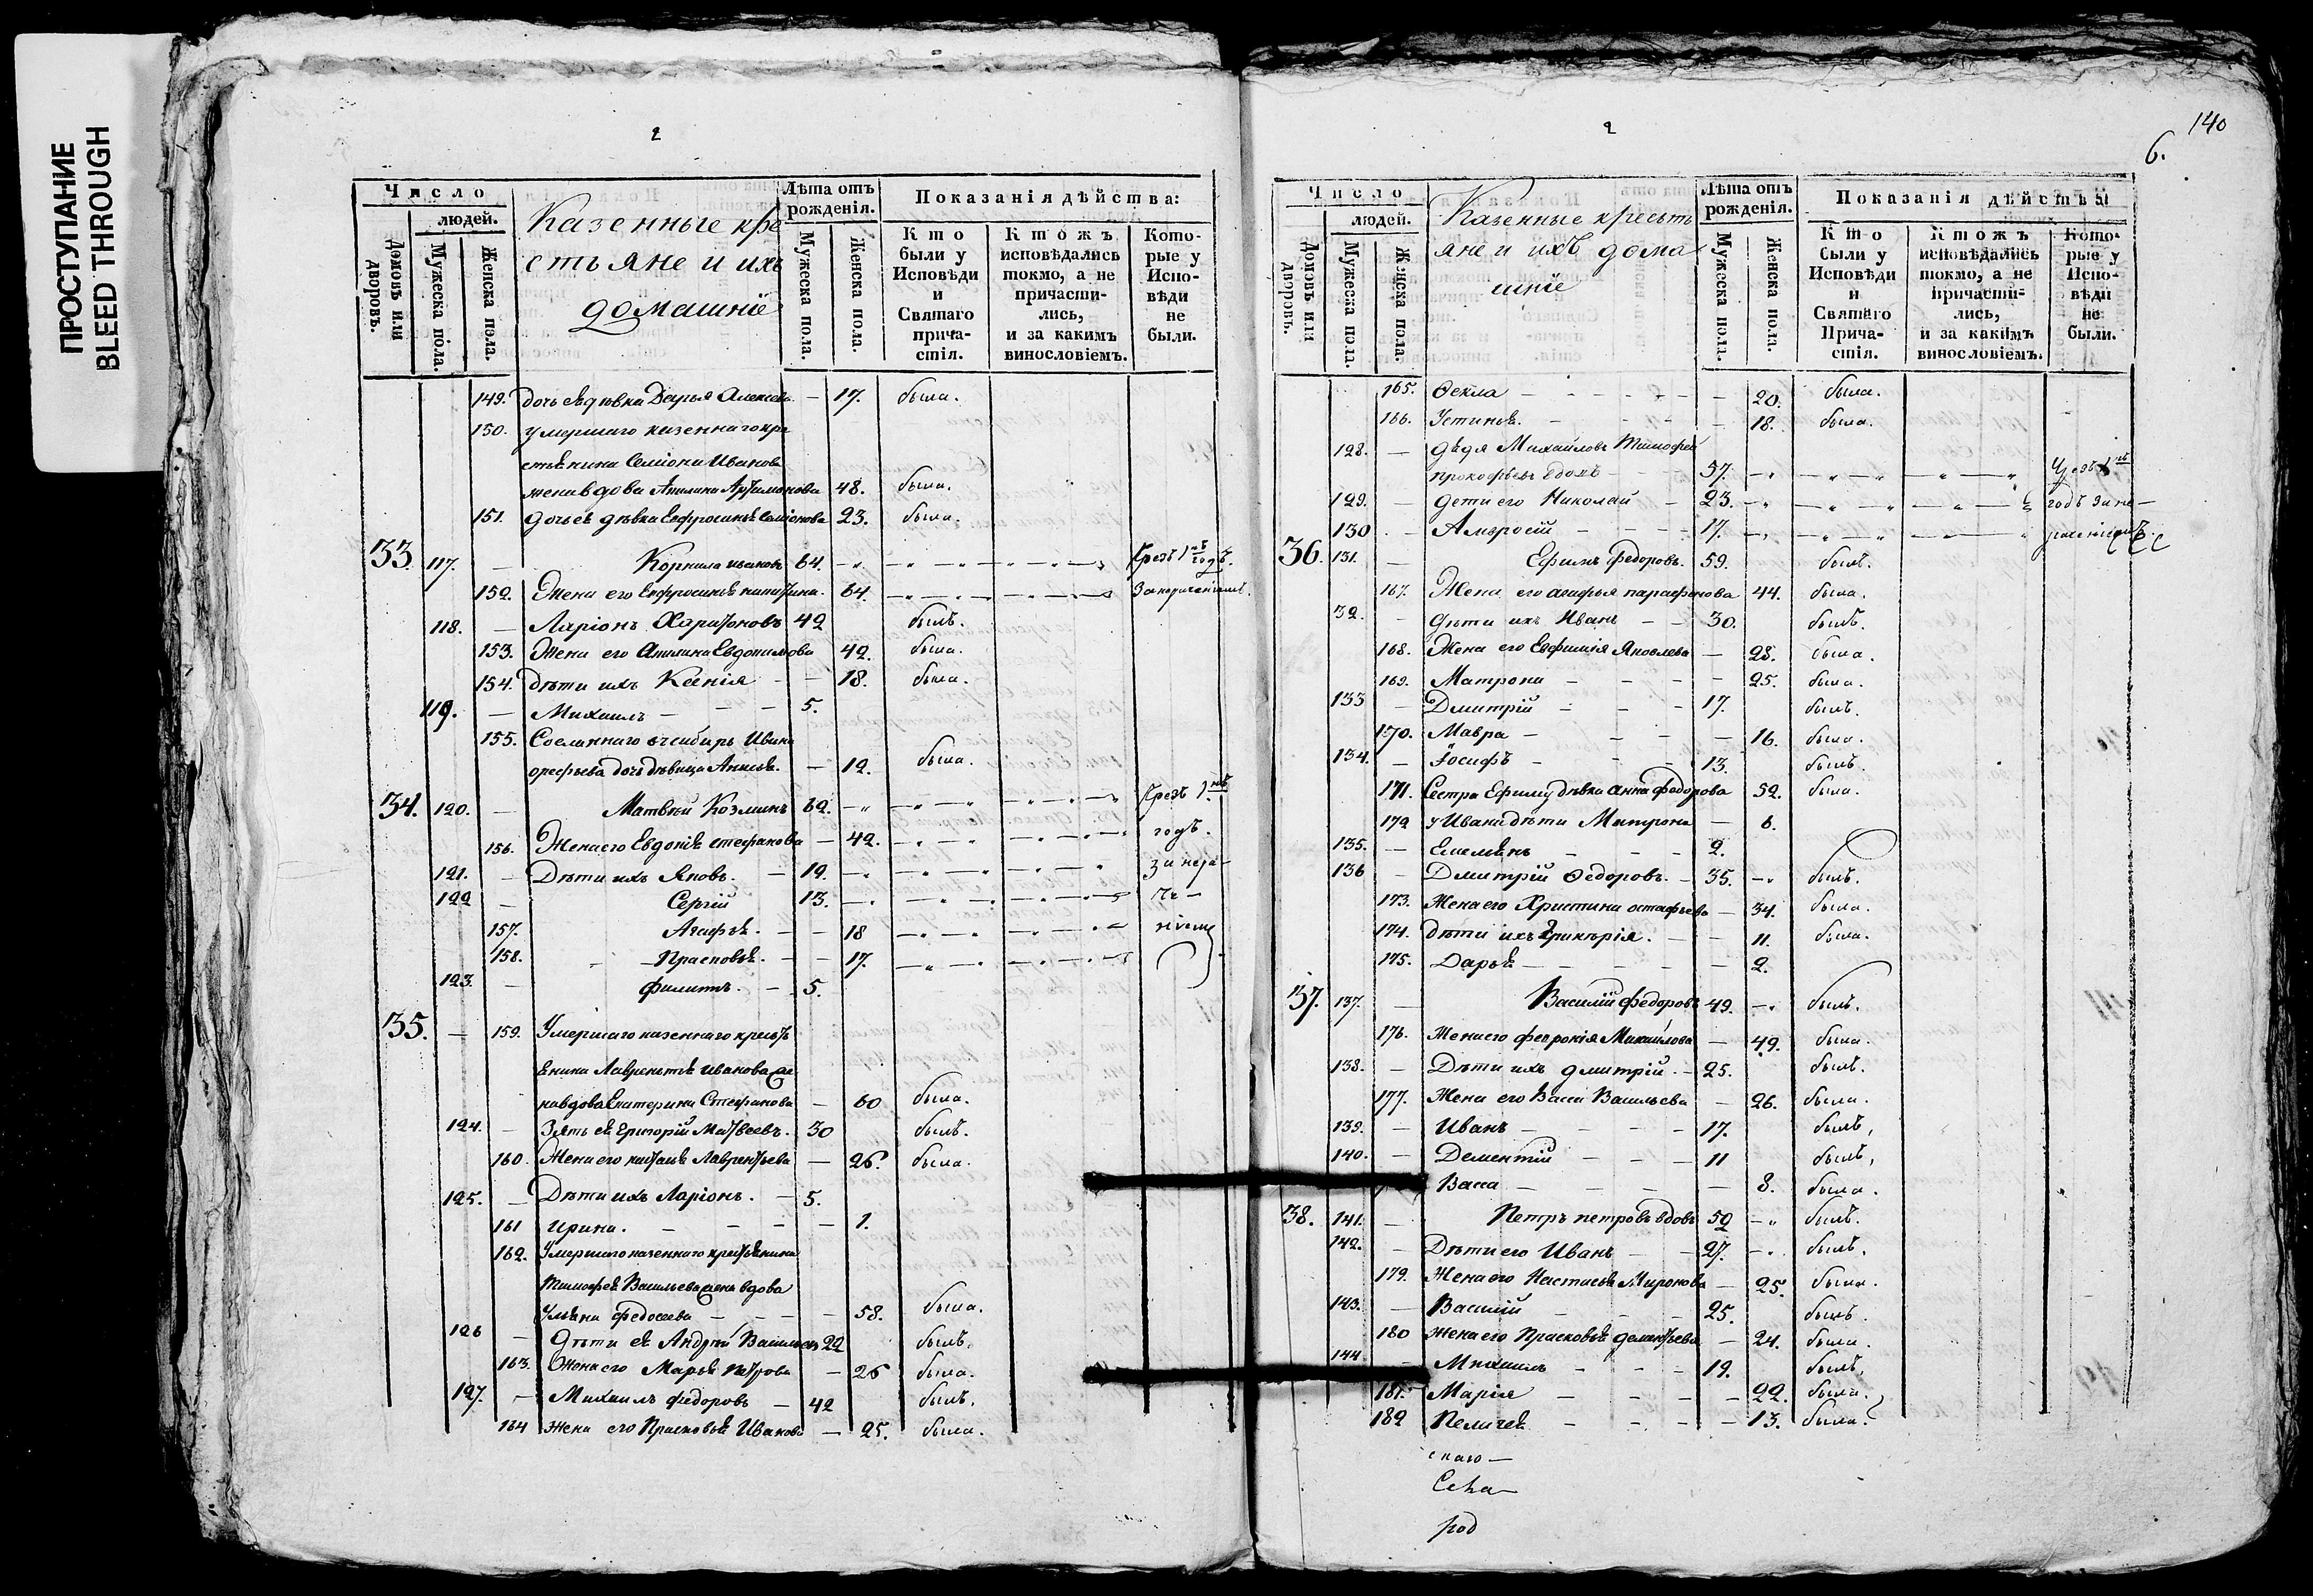 ПРОСТУПАНИЕ
BLEED THROUGH
Число
людей.
Домовъ или дворовъ.
Мужеска пола.
Женска пола.
Казенные кре
стьяне и ихъ
домашніе
Лѣта отъ рожденія.
Мужеска пола.
Женска пола.
Показанія дѣйства:
Кто были у Исповѣди и Святаго прича-стія.
Ктожъ исповѣдались токмо, а не причасти-лись, и за какимъ винословіемъ.
Кото-рые у Испо-вѣди не были.
149. дочь ея дѣвка Дарья — 17. была.
150. умершаго казеннаго кре
стьянина Семіона Иванова
жена вдова Артамонова 48. была.
151. дочь ея дѣвка Евфросинья Семіонова 23. была.
33. 117. — Корнила Иванов 64. Чрез 1 годъ.
152. Жена его Евфросинья 64.
118. — Ларіонъ Харитоновъ 42 былъ.
153. Жена его Евдокимова 42. была.
154. дѣти ихъ Ксенія — — 18. была.
119. — Михаилъ — — — 5.
155. Сосланнаго в сибирь Ивана
дочь дѣвица — 12. была.
34. 120. — Матвѣй Козминъ 62. Чрезъ 1
156. Жена его Евдокія Стефанова — 42. годъ.
121. — Дѣти ихъ Яковъ. — 19. за нера-
122 — Сергій 13.
157. Агафья. — — 18
158. — Прасковья. — — 17.
123. — Филиппъ. — 5.
35. — 159. Умершаго казеннаго кресть
янина Лаврентья Иванова
вдова Екатерина Стефанова — 60 была.
124. — Зять ея Григорій Матвеевъ. 30 былъ.
160. Жена его Лаврентьева — 26. была.
125. — Дѣти ихъ Ларіонъ. — 5.
161 Ирина. — — — — 1.
162. Умершаго казеннаго крестьянина
Тимофея Васильева жена вдова
Ульяна Федосеева — — — 58. была.
126 — дѣти ея Андрей Васильевъ 22 былъ.
163. Жена его Марья Петрова — 26 была.
127. — Михаилъ Федоровъ — 42 былъ.
164 Жена его Прасковья Иванова — 25. была.
140
6.
Число
людей.
Домовъ или дворовъ.
Мужеска пола.
Женска пола.
Казенные кресть
яне и ихъ дома
шніе
Лѣта отъ рожденія.
Мужеска пола.
Женска пола.
Показанія дѣйства
Кто были у Исповѣди и Святаго Прича-стія.
Ктожъ исповѣдались токмо, а не причасти-лись, и за какимъ винословіемъ.
Кото-рые у Испо-вѣди не были.
165. Ѳекла — — — — — 20. была.
166. Устинья. — — — — 18. была.
128. — дядя Михайловъ Тимофей
Прокофьевъ вдовъ — 57. Чрезъ 1
129. — дети его Николай — 23. годъ за не—
130 — Амвросій — — — 17.
36. 131. — Ефимъ Федоровъ. 59. былъ.
167. Жена его Агафья Парафонова 44. была.
32. — дѣти ихъ Иванъ — — 30. былъ.
168. Жена его Евфимія Яковлева — 28. была.
169. Матрона — — — — 25. была.
133 — Дмитрій — — — 17. былъ.
170. Мавра — — — — 16. была.
134. — Іосифъ — — — 13. былъ.
171. Сестра Ефиму дѣвка Анна Федорова 52. была.
172 у Ивана дѣти Матрона — 6.
135. — Емельянъ — — — 2.
136 — Дмитрій Ѳедоровъ. — 35. былъ.
173. Жена его Христина Остафьева — 34. была.
174. дѣти ихъ — — 11. была.
175. Дарья — — — — — 2.
37. 137. — Василій Федоровъ 49. былъ.
176. Жена его Феврокія Михайлова — 49. была.
138. — Дѣти ихъ дмитрій. — 25. былъ.
177. Жена его Васса Васильева — 26. была.
139. — Иванъ — — — — 17. былъ,
140. — Дементій — — — 11 былъ,
Васса — — — — — 8. была.
38. 141. — Петръ Петровъ вдовъ 52 былъ.
142. — Дѣти его Иванъ — — 27. былъ.
179. Жена его Настасья Миронова — 25. была.
143. — Василій — — — 25. былъ.
180 Жена его Прасковья Дементьева — 24. была.
144 — Михаилъ — — — 19. былъ,
181. Марія — — — — 22. была.
182 Пелагея — — — — 13. была.
скаго —
Села—